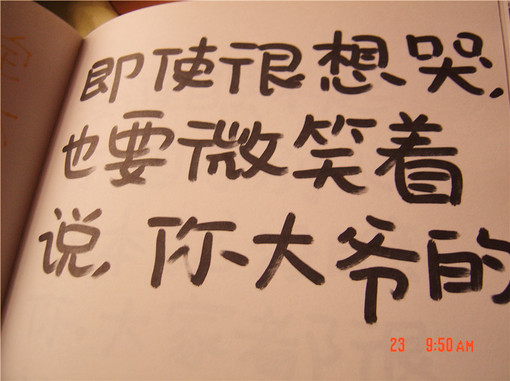 即使很想哭,
也要微笑着
说,你大爷的
23 9:50 AM